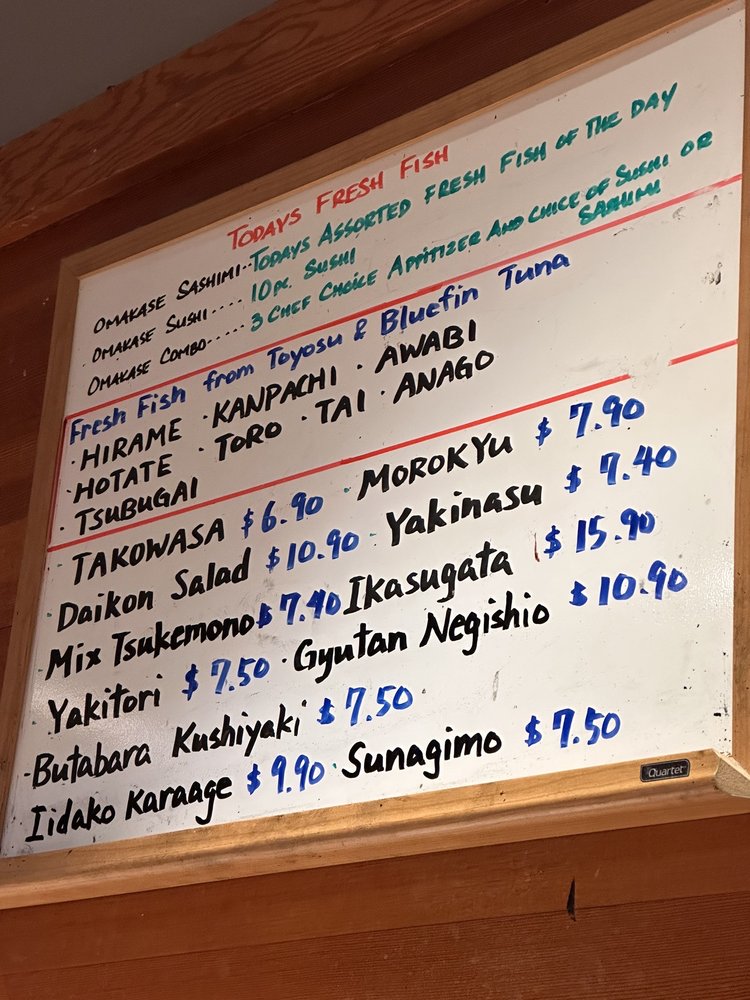 TODAYS FRESH FISH
OMAKASE SASHIMI.. TODAYS ASSORTED FRESH FISH OF THE DAY
OMAKASE SUSHI.... 10 PC. SUSHI
OMAKASE COMBO..... 3 CHEF CHOICE APPITIZER AND CHICE OF SUSHI OR
SASHIMI
Fresh Fish from Toyosu & Bluefin Tuna
· HIRAME · KANPACHI · AWABI
· HOTATE · TORO · TAI · ANAGO
· TSUBUGAI
· TAKOWASA $6.90 · MOROKYU $7.90
· Daikon Salad $10.90 · Yakinasu $7.40
· Mix Tsukemono $7.40 Ikasugata $15.90
· Yakitori $7.50 · Gyutan Negishio $10.90
· Butabara Kushiyaki $7.50
Iidako Karaage $9.90 · Sunagimo $7.50
Quartet